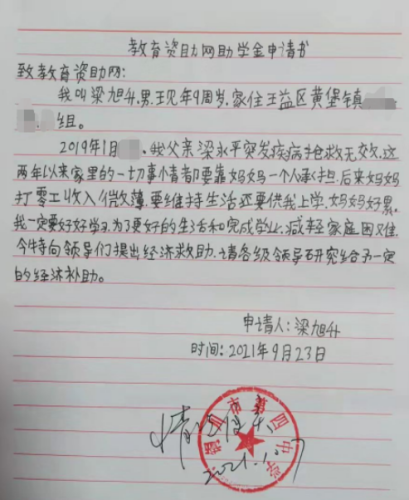 教育资助网助学金申请书
致教育资助网:
我叫梁旭升,男,现年9周岁,家住王益区黄堡镇
组。
2019年1月,我父亲梁永平突发疾病抢救无效,这
两年以来家里的一切事情都要靠妈妈一个人承担,后来妈妈
打零工收入微薄,要维持生活还要供我上学,妈妈好累。
我一定要好好学习,为了更好的生活和完成学业,减轻家庭困难
今特向领导们提出经济救助,请各级领导研究给予一定
的经济补助。
申请人:梁旭升
时间:2021年9月23日
情况属实
市第四中
2021.